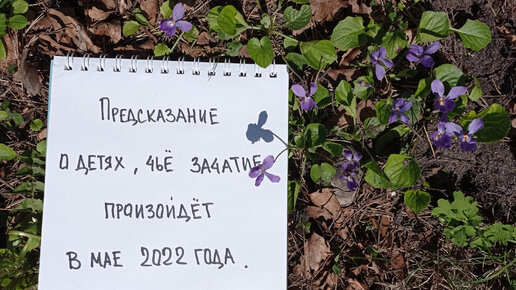 Предсказание
о детях, чьё зачатие
произойдёт
в мае 2022 года.